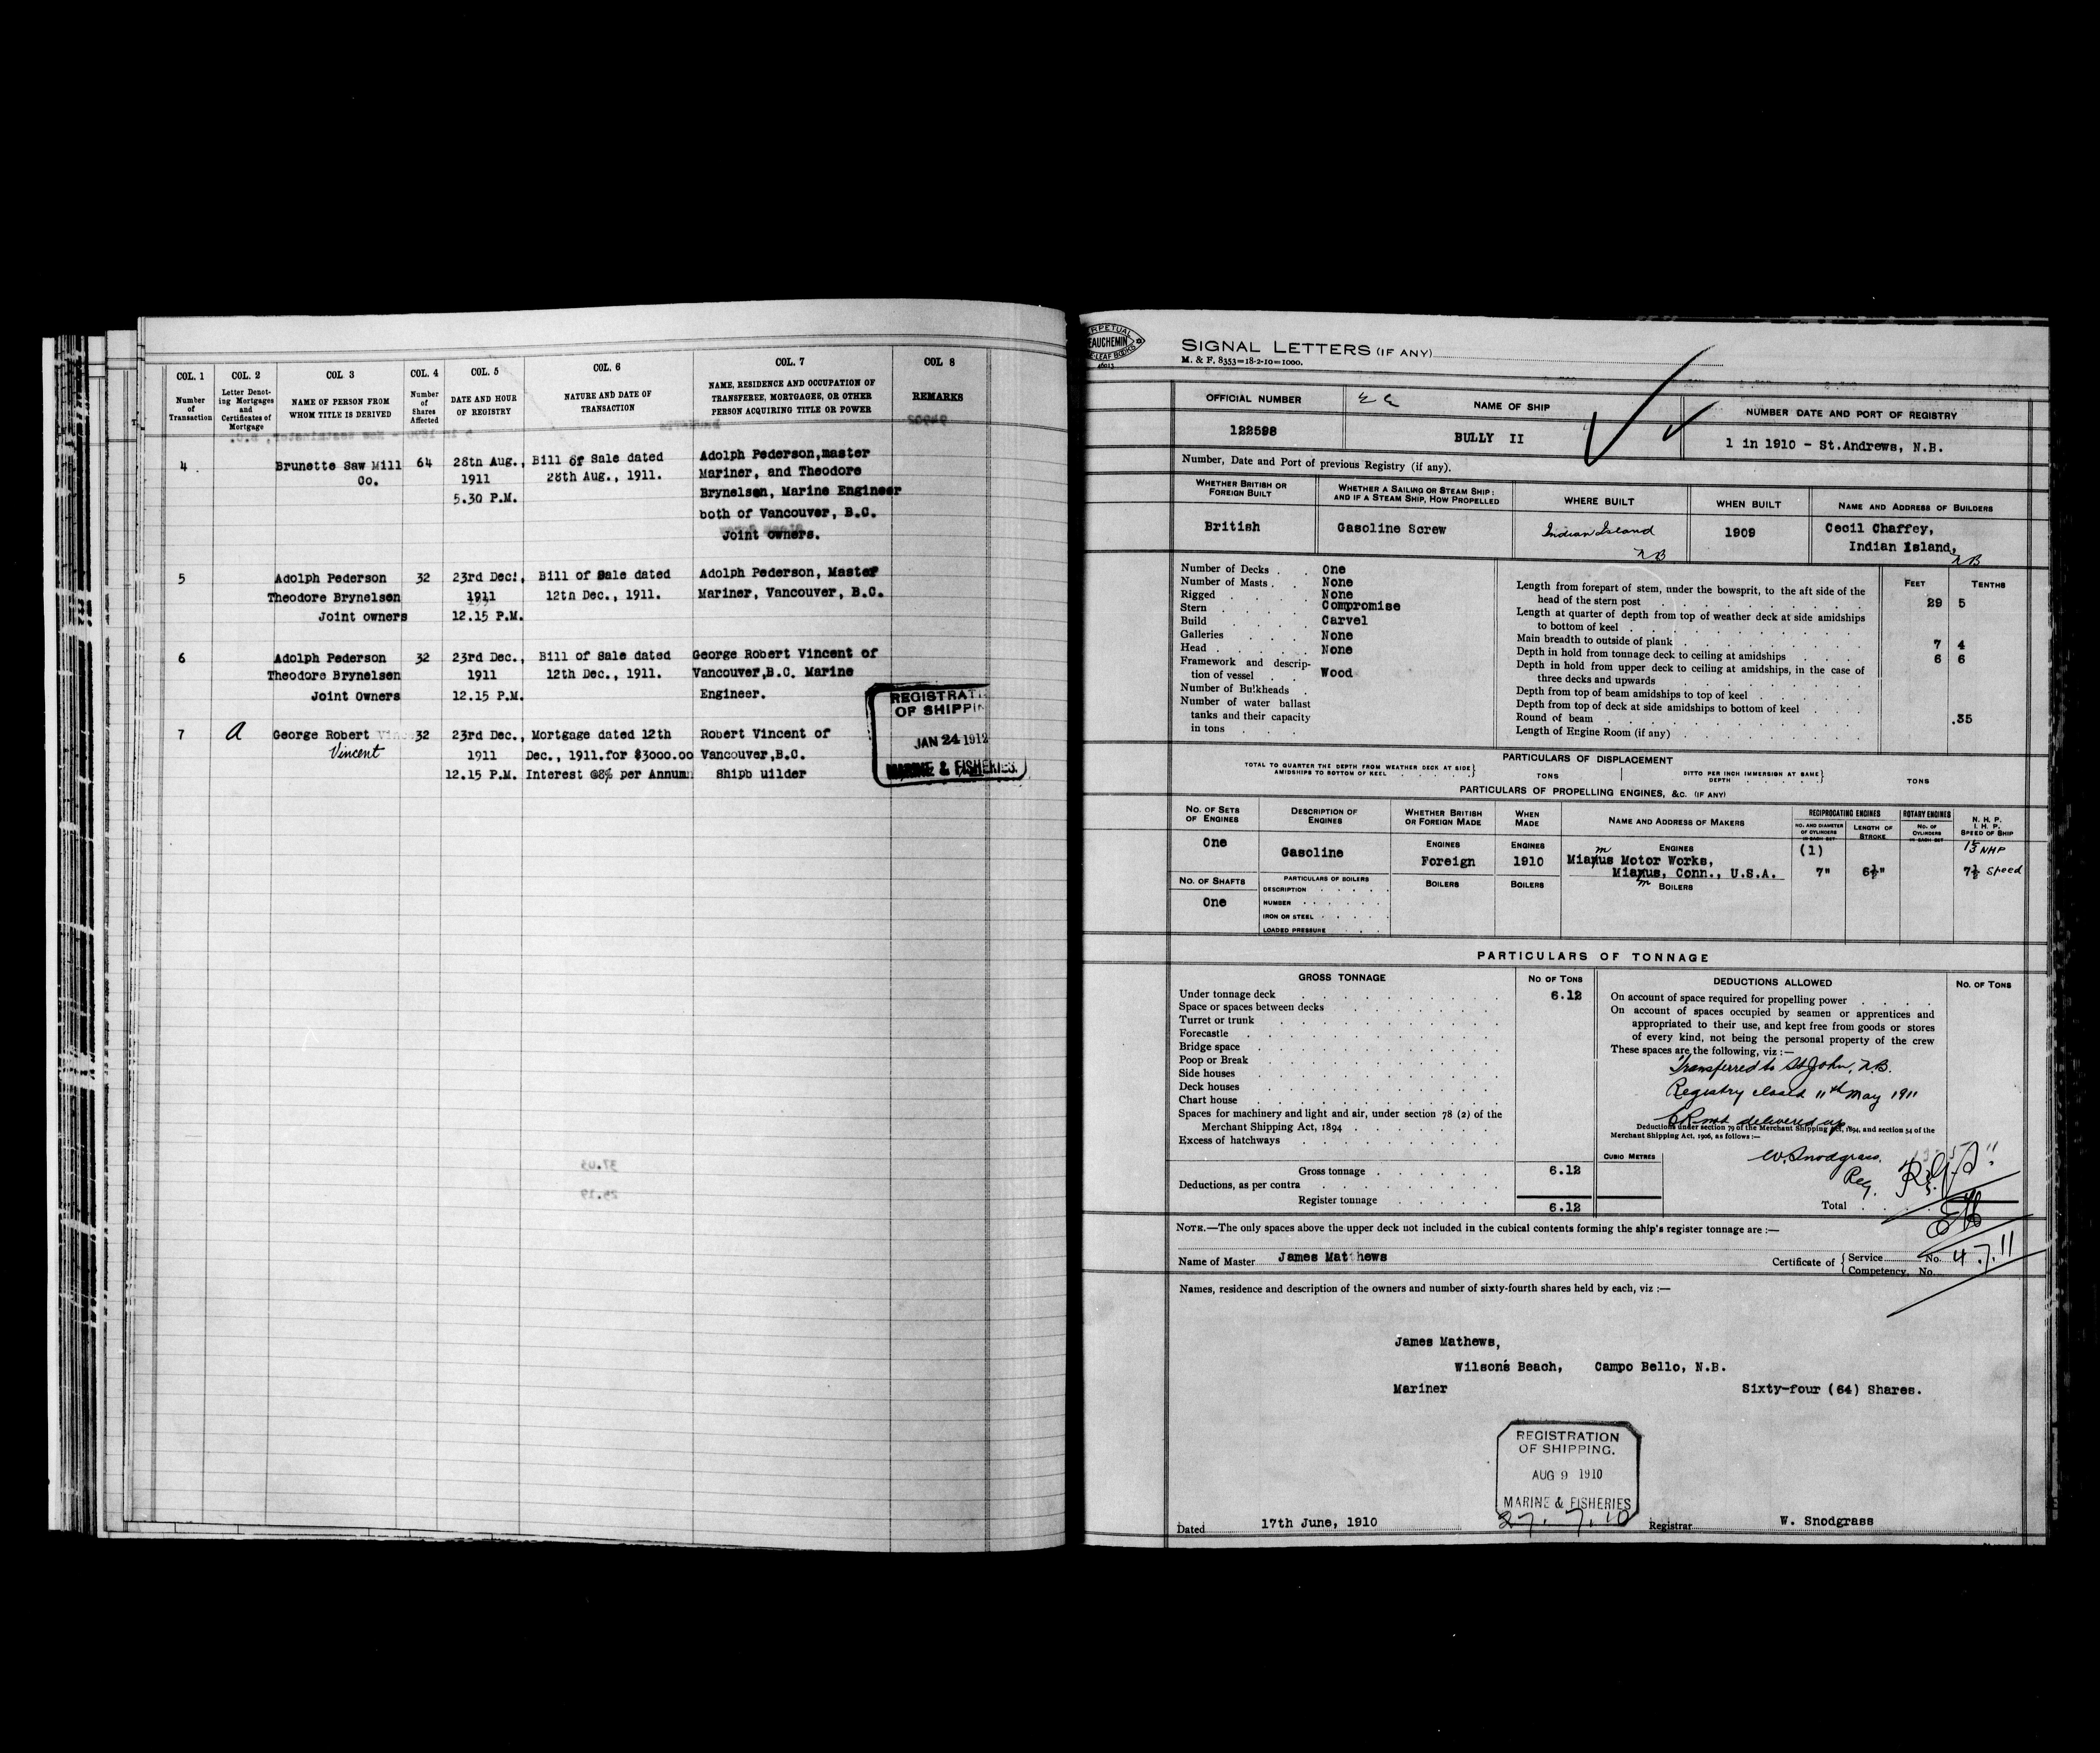 COL. 1 COL. 2 COL. 3 COL. 4 COL. 5 COL. 6 COL. 7 COL 8
Number of Transaction
Letter Denoting Mortgages and Certificates of Mortgage
NAME OF PERSON FROM WHOM TITLE IS DERIVED
Number of Shares Affected
DATE AND HOUR OF REGISTRY
NATURE AND DATE OF TRANSACTION
NAME, RESIDENCE AND OCCUPATION OF TRANSFEREE, MORTGAGEE, OR OTHER PERSON ACQUIRING TITLE OR POWER
REMARKS
4 Brunette Saw Mill 64 28th Aug., Bill of Sale dated Adolph Pederson,master
Co. 1911 28th Aug., 1911. Mariner, and Theodore
5.30 P.M. Brynelsen, Marine Engineer
both of Vancouver, B.C.
Joint owners.
5 Adolph Pederson 32 23rd Dec., Bill of Sale dated Adolph Pederson, Master
Theodore Brynelsen 1911 12th Dec., 1911. Mariner, Vancouver, B.C.
Joint owners 12.15 P.M.
6 Adolph Pederson 32 23rd Dec., Bill of Sale dated George Robert Vincent of
Theodore Brynelsen 1911 12th Dec., 1911. Vancouver,B.C. Marine
Joint Owners 12.15 P.M. Engineer.
7 a George Robert 32 23rd Dec., Mortgage dated 12th Robert Vincent of
Vincent 1911 Dec., 1911.for $3000.00 Vancouver,B.C.
12.15 P.M. Interest @8% per Annum Shipb uilder
REGISTRATI
OF SHIPPIN
JAN 24 1912
MARINE & FISHERIES.
PERPETUAL
BEAUCHEMIN
LEAF BOOKS
SIGNAL LETTERS (IF ANY)
M. & F. 8353=18-2-10=1000.
OFFICIAL NUMBER NAME OF SHIP NUMBER DATE AND PORT OF REGISTRY
122598 BULLY II 1 in 1910 - St.Andrews, N.B.
Number, Date and Port of previous Registry (if any).
WHETHER BRITISH OR FOREIGN BUILT
WHETHER A SAILING OR STEAM SHIP; AND IF A STEAM SHIP, HOW PROPELLED
WHERE BUILT
WHEN BUILT
NAME AND ADDRESS OF BUILDERS
British Gasoline Screw Indian Island 1909 Cecil Chaffey,
NB Indian Island, NB
Number of Decks One
Number of Masts None
Rigged None
Stern Compromise
Build Carvel
Galleries None
Head None
Framework and description of vessel Wood
Number of Bulkheads
Number of water ballast
tanks and their capacity
in tons
FEET TENTHS
Length from forepart of stem, under the bowsprit, to the aft side of the
head of the stern post 29 5
Length at quarter of depth from top of weather deck at side amidships
to bottom of keel
Main breadth to outside of plank 7 4
Depth in hold from tonnage deck to ceiling at amidships 6 6
Depth in hold from upper deck to ceiling at amidships, in the case of
three decks and upwards
Depth from top of beam amidships to top of keel
Depth from top of deck at side amidships to bottom of keel
Round of beam .35
Length of Engine Room (if any)
PARTICULARS OF DISPLACEMENT
TOTAL TO QUARTER THE DEPTH FROM WEATHER DECK AT SIDE AMIDSHIPS TO BOTTOM OF KEEL TONS DITTO PER INCH IMMERSION AT SAME DEPTH TONS
PARTICULARS OF PROPELLING ENGINES, &C. (IF ANY)
NO. OF SETS OF ENGINES
DESCRIPTION OF ENGINES
WHETHER BRITISH OR FOREIGN MADE
WHEN MADE
NAME AND ADDRESS OF MAKERS
RECIPROCATING ENGINES
NO. AND DIAMETER OF CYLINDERS IN EACH SET
LENGTH OF STROKE
ROTARY ENGINES
NO. OF CYLINDERS IN EACH SET
N. H. P.
I. H. P.
SPEED OF SHIP
ENGINES ENGINES ENGINES
One Gasoline Foreign 1910 Mianus Motor Works, (1) NHP
Mianus, Conn., U.S.A. 7" 6½" 7½ Speed
m
m
NO. OF SHAFTS PARTICULARS OF BOILERS BOILERS BOILERS BOILERS
DESCRIPTION
One NUMBER
IRON OR STEEL
LOADED PRESSURE
PARTICULARS OF TONNAGE
GROSS TONNAGE NO OF TONS DEDUCTIONS ALLOWED NO. OF TONS
Under tonnage deck 6.12
Space or spaces between decks
Turret or trunk
Forecastle
Bridge space
Poop or Break
Side houses
Deck houses
Chart house
Spaces for machinery and light and air, under section 78 (2) of the
Merchant Shipping Act, 1894
Excess of hatchways
Gross tonnage 6.12
Deductions, as per contra
Register tonnage 6.12
On account of space required for propelling power
On account of spaces occupied by seamen or apprentices and
appropriated to their use, and kept free from goods or stores
of every kind, not being the personal property of the crew
These spaces are the following, viz :—
Transferred to St John, N.B.
Registry closed 11th May 1911
delivered up
Deductions under section 79 of the Merchant Shipping Act, 1894, and section 54 of the
Merchant Shipping Act, 1906, as follows :—
CUBIC METRES
W. Snodgrass.
Reg.
Total
NOTE.—The only spaces above the upper deck not included in the cubical contents forming the ship's register tonnage are :—
Name of Master James Mat hews Certificate of Service No.
Competency No.
4.7.11
Names, residence and description of the owners and number of sixty-fourth shares held by each, viz :—
James Mathews,
Wilson's Beach, Campo Bello, N.B.
Mariner Sixty-four (64) Shares.
REGISTRATION
OF SHIPPING.
AUG 9 1910
MARINE & FISHERIES
27.7.10
Dated 17th June, 1910 Registrar W. Snodgrass